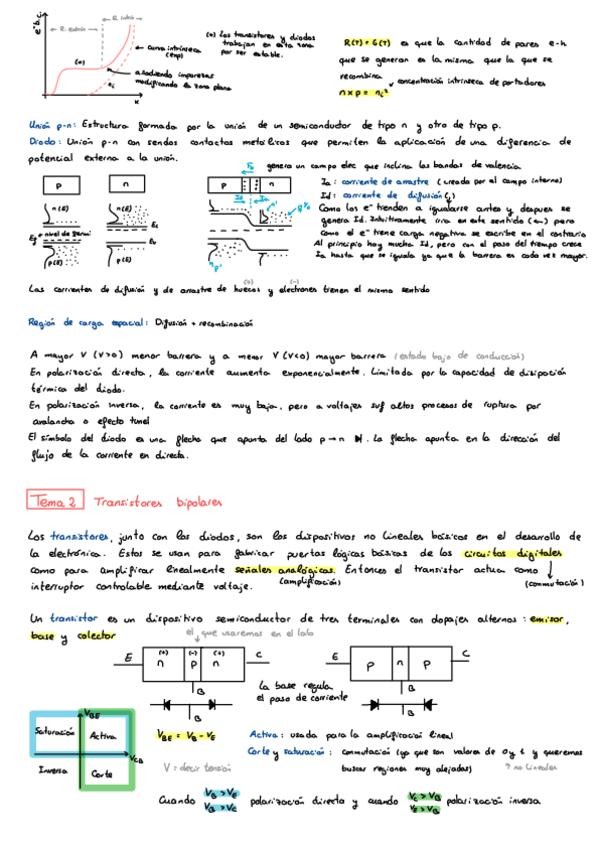 e⁻ b.c.
R. extrín
R. intrín
(*)
curva intrínseca
(exp)
añadiendo impurezas
modificando la zona plana
n_i
K
(*) Los transistores y diodos
trabajan en esta zona
por ser estable.
R(T) = G(T) es que la cantidad de pares e-h
que se generan es la misma que la que se
recombina
concentración intrínseca de portadores
n x p = n_i²
Unión p-n: Estructura formada por la unión de un semiconductor de tipo n y otro de tipo p.
Diodo: Unión p-n con sendos contactos metálicos que permiten la aplicación de una diferencia de
potencial externa a la unión.
genera un campo elec que inclina las bandas de valencia
p n p n
n(E) n(E) E_c
nivel de fermi E_v
p(E) p(E)
Ia: corriente de arrastre (creada por el campo interno)
Id: corriente de difusión
Como los e⁻ tienden a igualarse antes y despues se
genera Id. Intuitivamente iria en este sentido (←) pero
como el e⁻ tiene carga negativa se escribe en el contrario
Al principio hay mucha Id, pero con el paso del tiempo crece
Ia hasta que se iguala ya que la barrera es cada vez mayor.
(+) (-)
Las corrientes de difusión y de arrastre de huecos y electrones tienen el mismo sentido
Región de carga espacial: Difusión + recombinación
A mayor V (V>0) menor barrera y a menor V (V<0) mayor barrera (estado bajo de conducción)
En polarización directa, la corriente aumenta exponencialmente. Limitada por la capacidad de disipación
térmica del diodo.
En polarización inversa, la corriente es muy baja, pero a voltajes suf altos procesos de ruptura por
avalancha o efecto tunel
El símbolo del diodo es una flecha que apunta del lado p → n. La flecha apunta en la dirección del
flujo de la corriente en directa.
Tema 2 Transistores bipolares
Los transistores, junto con los diodos, son los dispositivos no lineales básicos en el desarrollo de
la electrónica. Estos se usan para fabricar puertas lógicas básicas de los circuitos digitales
como para amplificar linealmente señales analógicas. Entonces el transistor actua como
(amplificación) (conmutación)
interruptor controlable mediante voltaje.
Un transistor es un dispositivo semiconductor de tres terminales con dopajes alternos: emisor,
base y colector
el que usaremos en el lab
E (+) n (-) p (+) n C
B
La base regula
el paso de corriente
B
E p n p C
B
B
V_BE
Saturación Activa
V_CB
Inversa Corte
V_BE = V_B - V_E
V = decir tensión
Activa: usada para la amplificación lineal
Corte y saturación: conmutación (ya que son valores de 0 y 1 y queremos
buscar regiones muy alejadas)
? no lineales
Cuando V_B > V_E V_B > V_C polarización directa y cuando V_C > V_B V_E > V_B polarización inversa